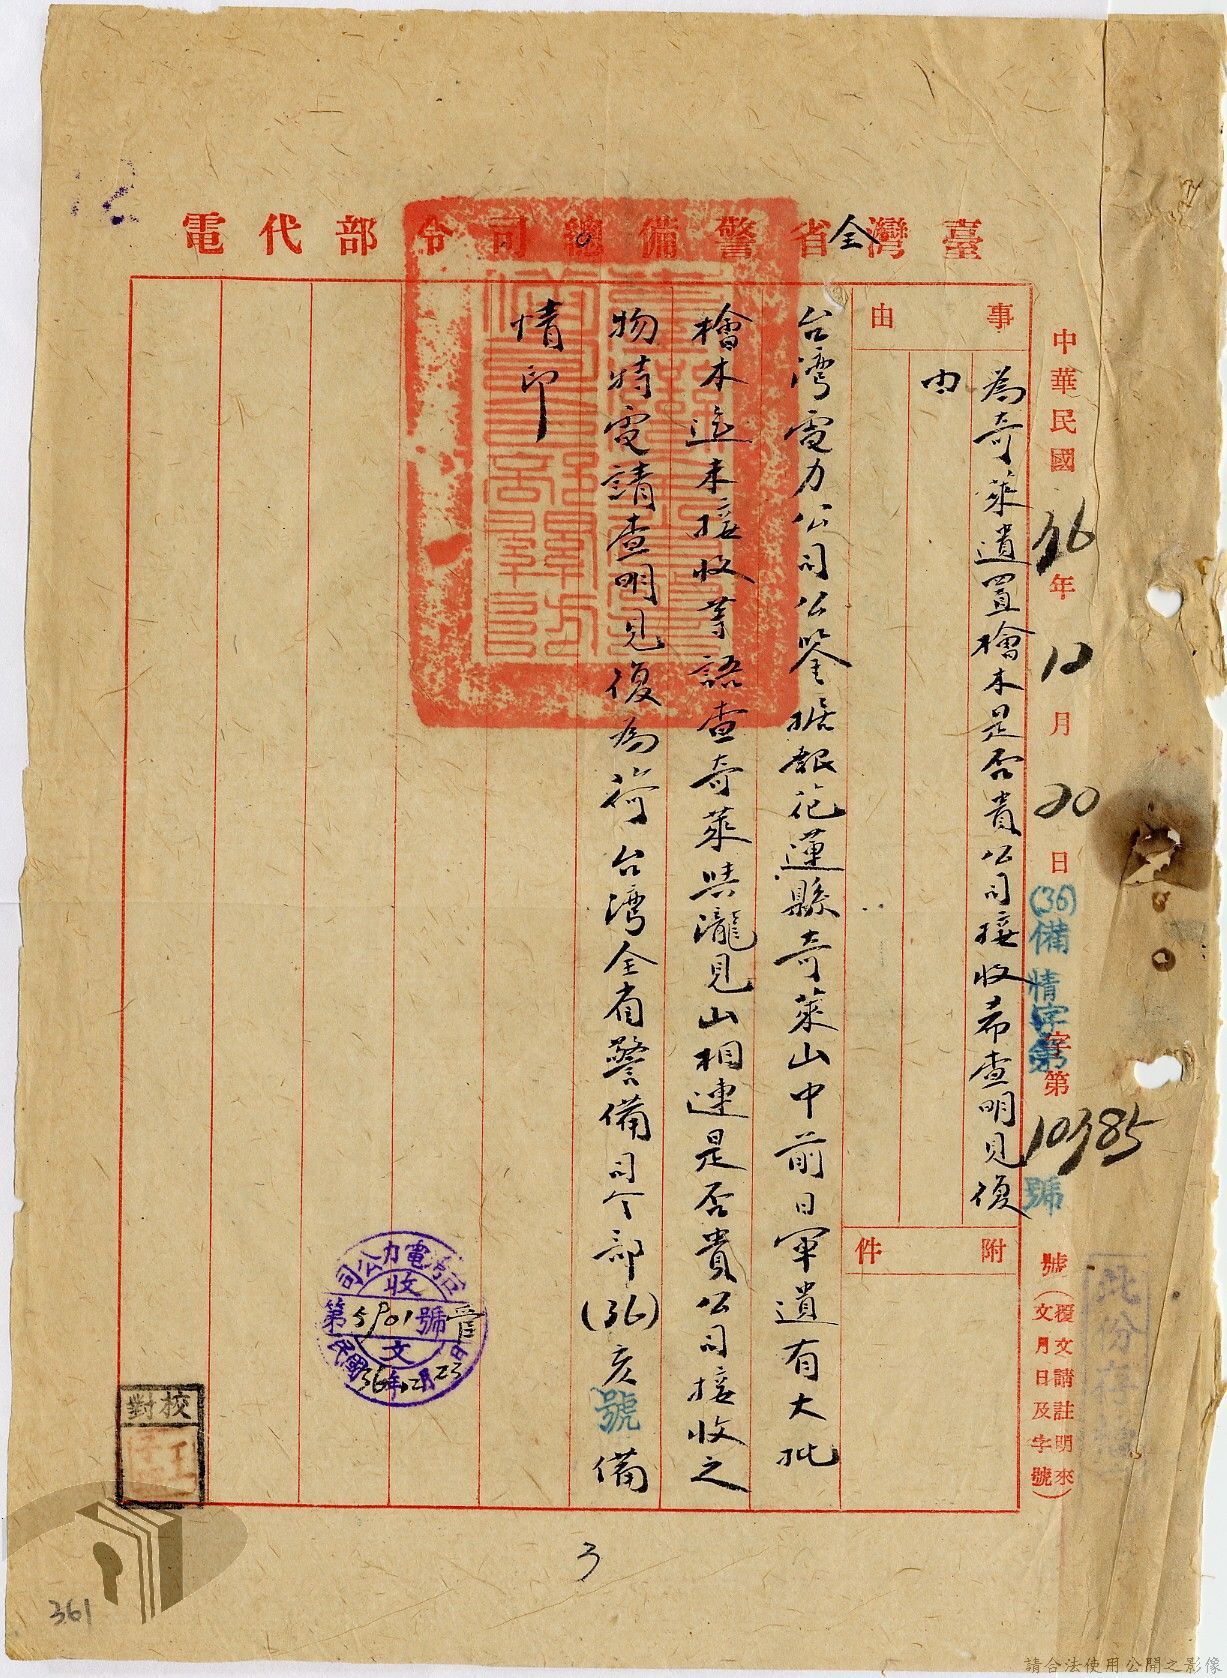 臺灣全省警備總司令部代電
中華民國36年12月20日
(36)備情字第10385號
字第 號(覆文請註明來文月日及字號)
事由
為奇萊遺置檜木是否貴公司接收希查明見復
由
附件
台湾電力公司公鑒據報花蓮縣奇萊山中前日軍遺有大批
檜木迄未接收等語查奇萊與瀧見山相連是否貴公司接收之
物特電請查明見復為荷 台湾全省警備司令部(36)亥號備
情印
台灣電力公司
收文
第5901號
民國36年12月23日
校對
3
361
請合法使用公開之影像